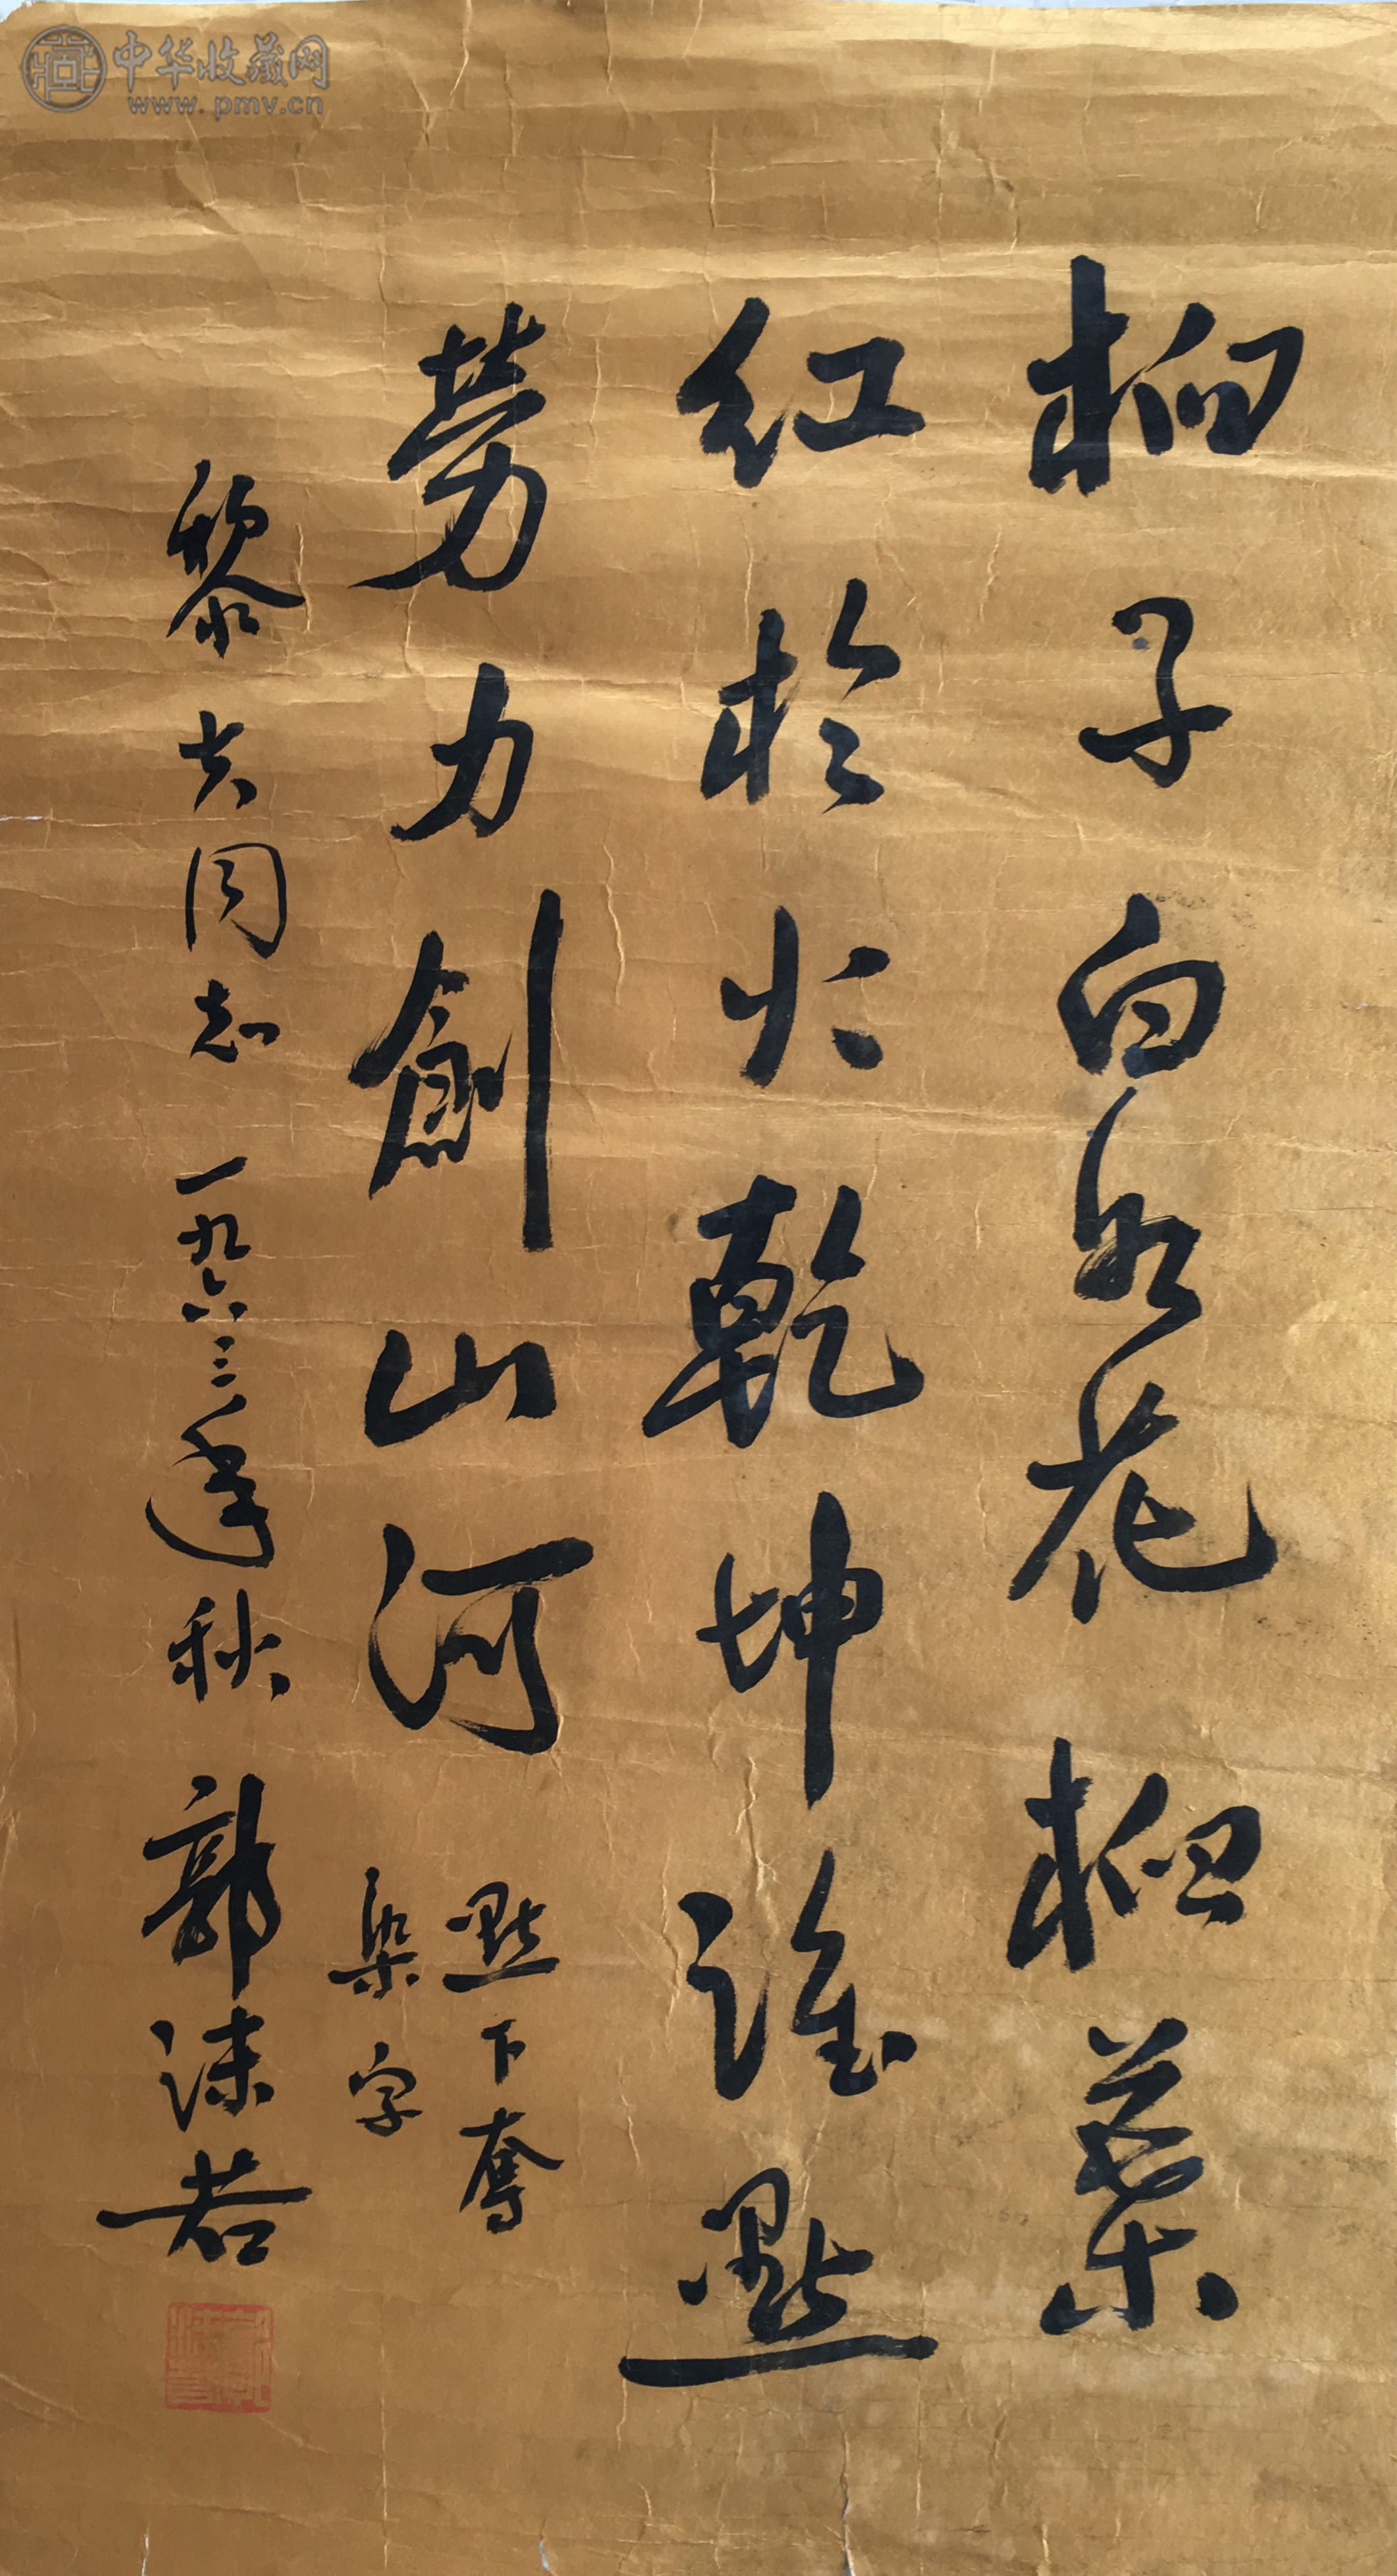 中华收藏网
www.pmv.cn
桕子白花桕葉
紅於火乾坤誰點
勞力創山河
點下奪
染字
黎同志一九六三年秋郭沫若